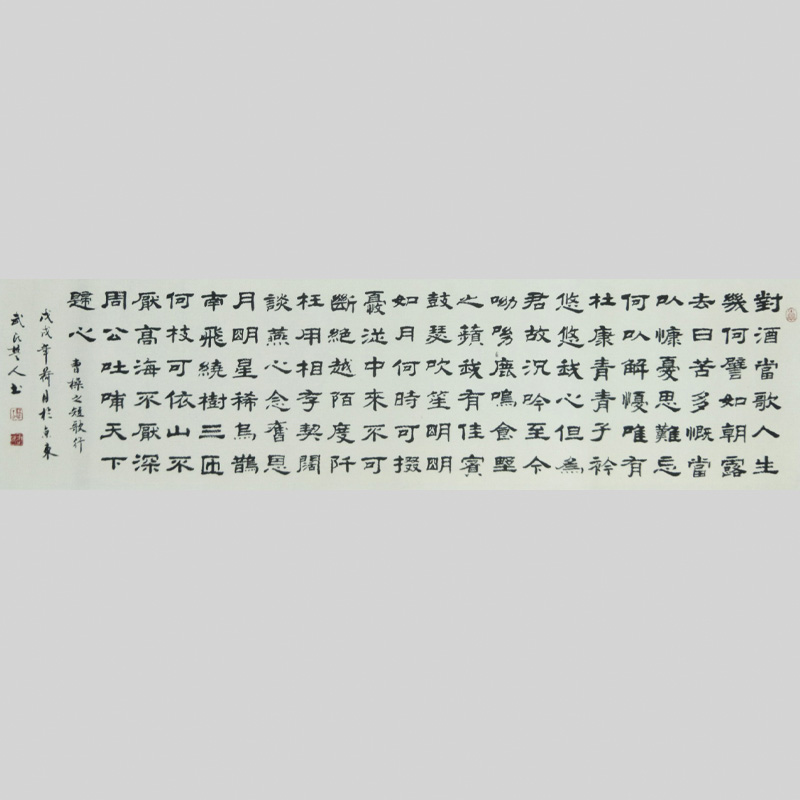 對酒當歌人生
幾何譬如朝露
去日苦多慨當
以慷憂思難忘
何以解憂唯有
杜康青青子衿
悠悠我心但為
君故沉吟至今
呦呦鹿鳴食野
之蘋我有佳賓
鼓瑟吹笙明明
如月何時可掇
憂從中來不可
斷絕越陌度阡
枉用相存契闊
談燕心念舊恩
月明星稀烏鵲
南飛繞樹三匝
何枝可依山不
厭高海不厭深
周公吐哺天下
歸心
曹操之短歌行
戊戌年荷月於京東
武氏人書